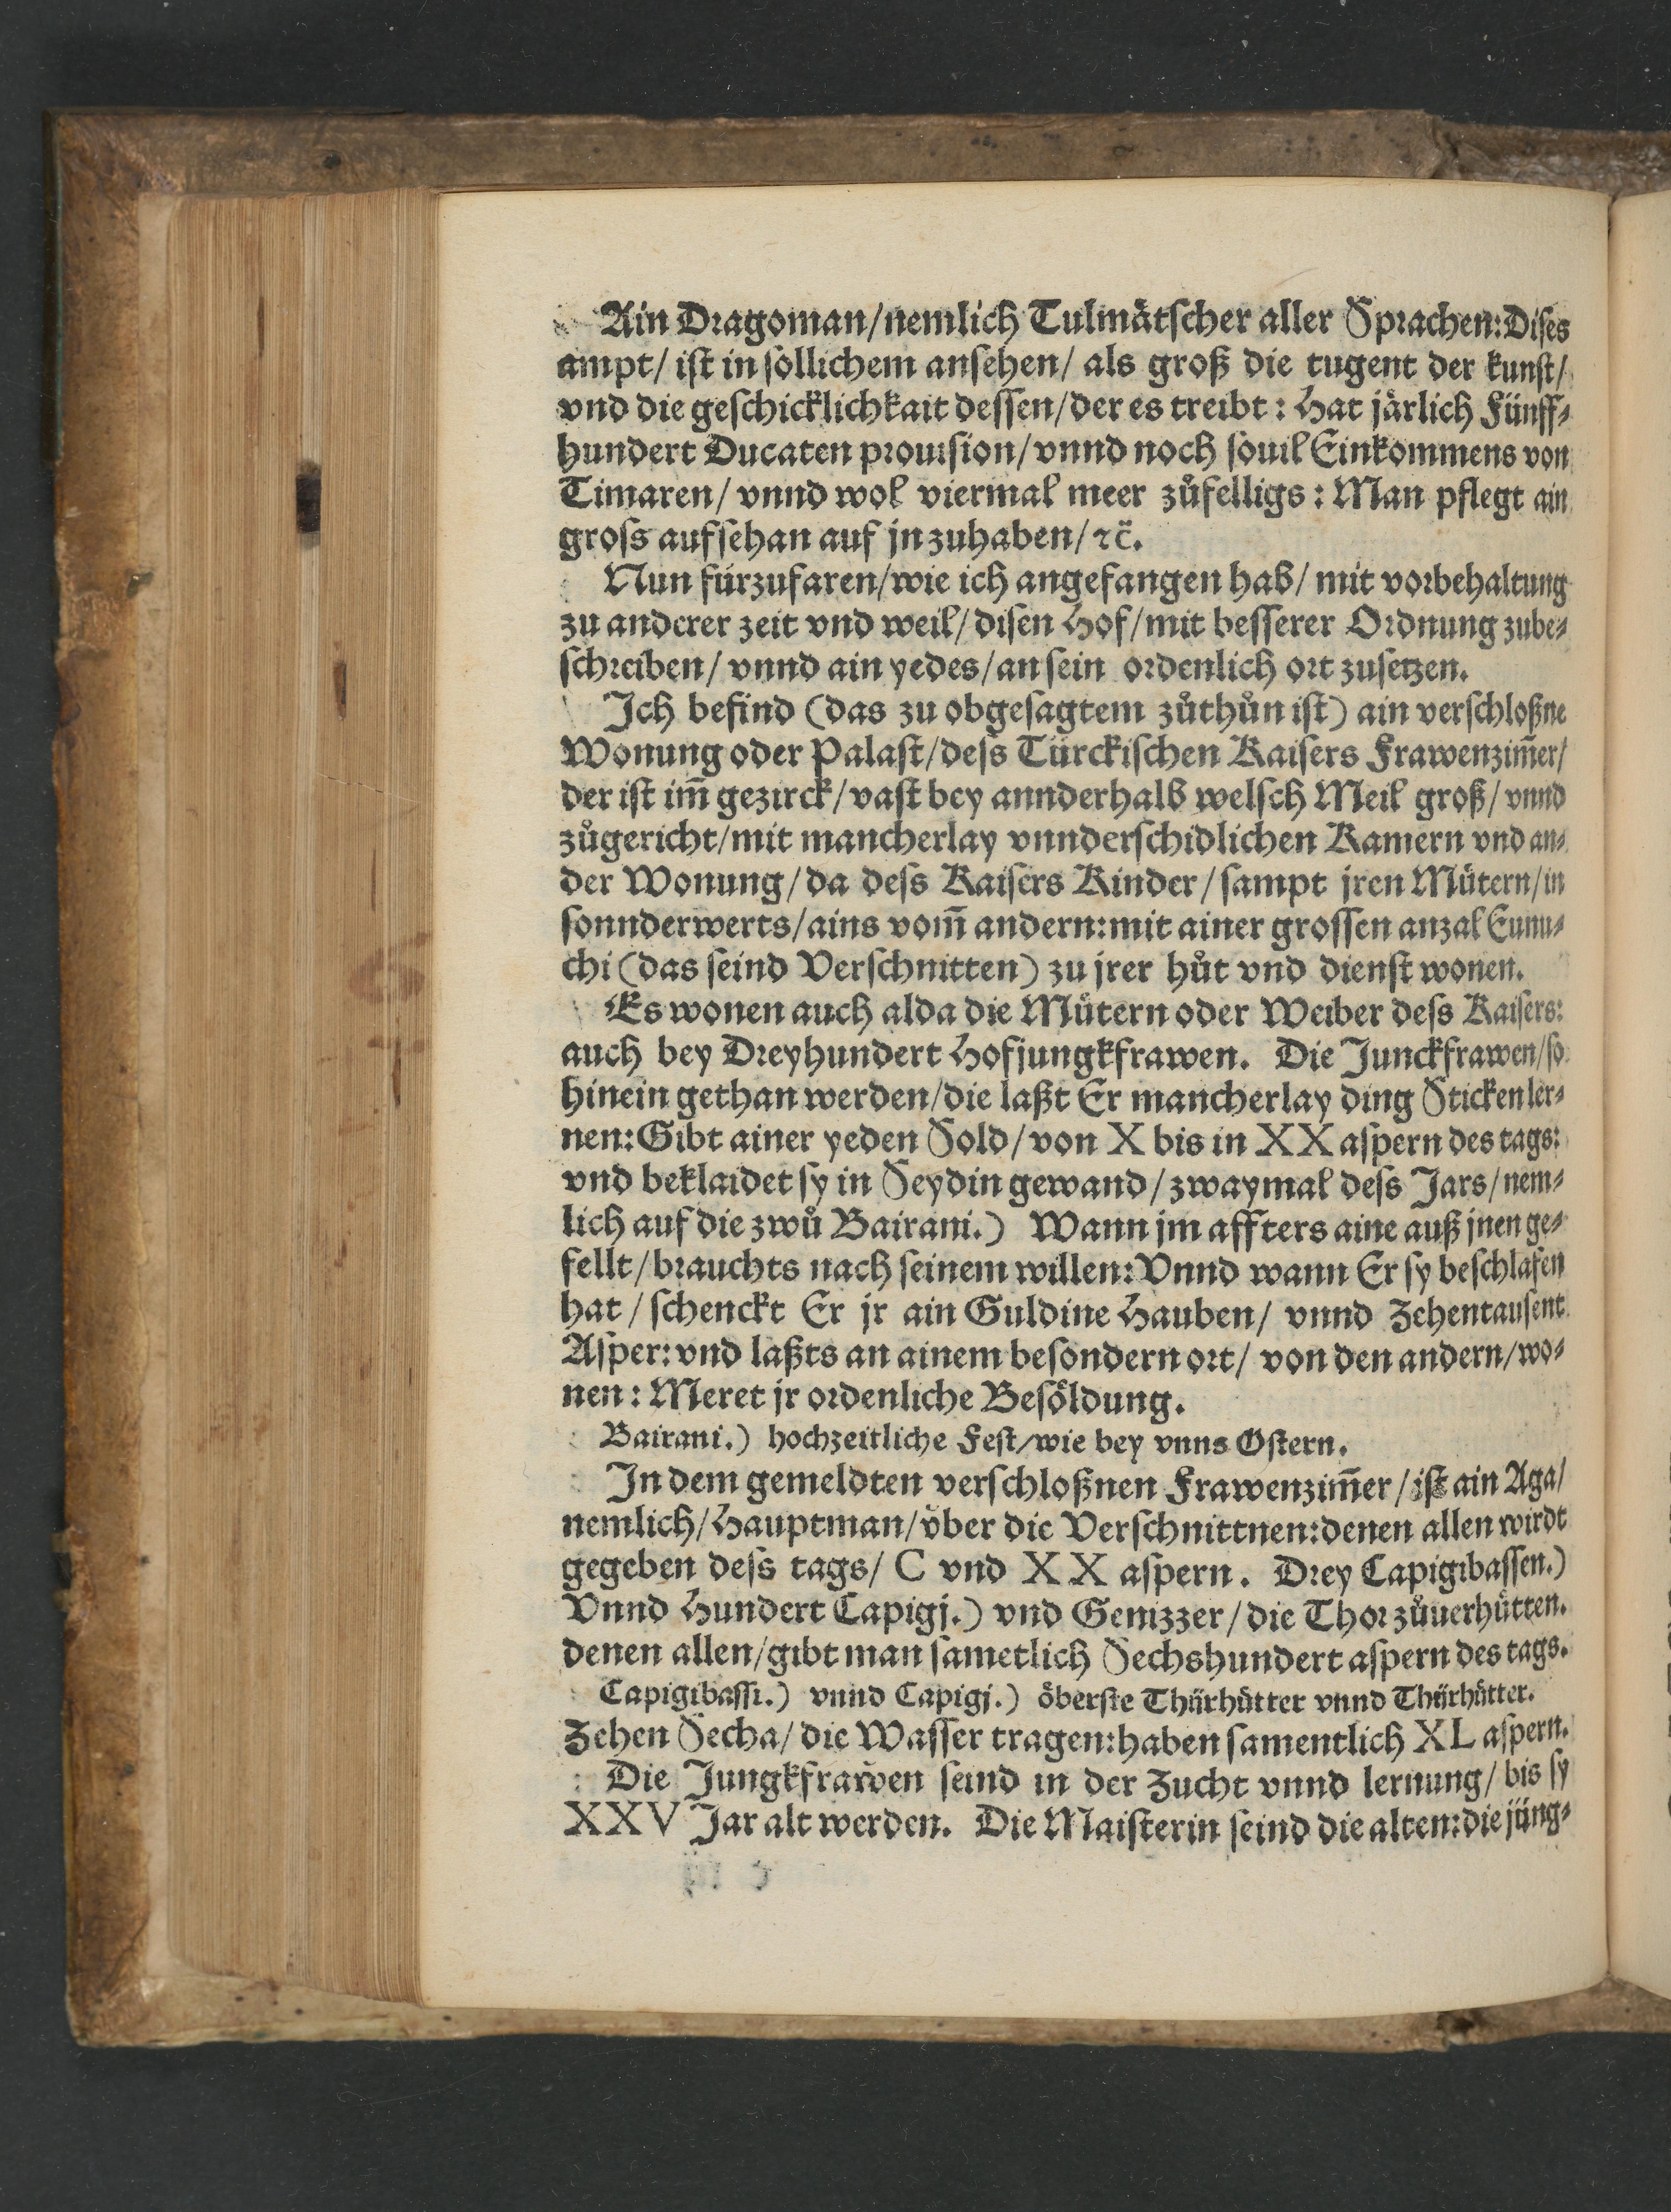 Ain Dragoman/nemlich Tulmätscher aller Sprachen:Dises
ampt/ ist in sollichem ansehen/ als groß die tugent der kunst/
vnd die geschicklichkait dessen/der es treibt: Hat järlich Fünff⸗
hundert Ducaten prouision/vnnd noch souil Einkommens von
Timaren/ vnnd wol viermal meer zůfelligs: Man pflegt ain
gross aufsehan auf jn zuhaben/ ꝛc̈.
Nun fürzufaren/wie ich angefangen hab/ mit vorbehaltung
zu anderer zeit vnd weil/ disen Hof/mit besserer Ordnung zube⸗
schreiben/ vnnd ain yedes/an sein ordenlich ort zusetzen.
Ich befind (das zu obgesagtem zůthůn ist) ain verschloßne
Wonung oder Palast/dess Türckischen Kaisers Frawenzim̄er/
der ist im̄ gezirck/vast bey annderhalb welsch Meil groß/ vnnd
zůgericht/mit mancherlay vnnderschidlichen Kamern vnd an⸗
der Wonung/da dess Kaisers Kinder/sampt jren Mütern/in
sonnderwerts/ains vom̄ andern:mit ainer grossen anzal Eunu⸗
chi (das seind Verschnitten) zu jrer hůt vnd dienst wonen.
Es wonen auch alda die Mütern oder Weiber dess Kaisers:
auch bey Dreyhundert Hofjungkfrawen. Die Junckfrawen/so
hinein gethan werden/die laßt Er mancherlay ding Sticken ler⸗
nen:Gibt ainer yeden Sold/von X bis in XX aspern des tags:
vnd beklaidet sy in Seydin gewand/zwaymal dess Jars/nem⸗
lich auf die zwů Bairani.) Wann jm affters aine auß jnen ge⸗
fellt/brauchts nach seinem willen:Vnnd wann Er sy beschlafen
hat/ schenckt Er jr ain Guldine Hauben/ vnnd Zehentausent
Asper:vnd laßts an ainem besondern ort/ von den andern/wo⸗
nen: Meret jr ordenliche Besöldung.
Bairani.) hochzeitliche Fest/wie bey vnns Ostern.
In dem gemeldten verschloßnen Frawenzim̄er/ist ain Aga/
nemlich/Hauptman/vͤber die Verschnittnen:denen allen wirdt
gegeben dess tags/ C vnd XX aspern. Drey Capigibassen.)
Vnnd Hundert Capigj.) vnd Genizzer/die Thor zůuerhütten.
denen allen/gibt man sametlich Sechshundert aspern des tags.
Capigibassi.) vnnd Capigj.) öberste Thürhütter vnnd Thürhütter.
Zehen Secha/ die Wasser tragen:haben samentlich XL aspern.
Die Jungkfrawen seind in der Zucht vnnd lernung/ bis sy
XXV Jar alt werden. Die Maisterin seind die alten:die jüng⸗